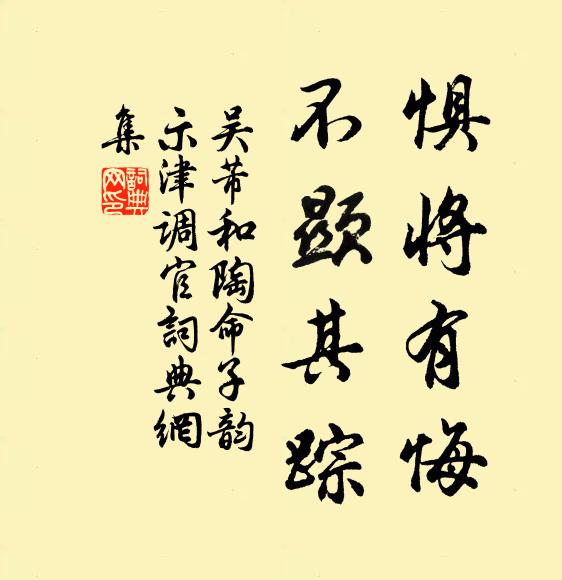 惧将有悔
不显其踪
吴芾和陶命子韵
示津调官詞典網
集
詞典
网印